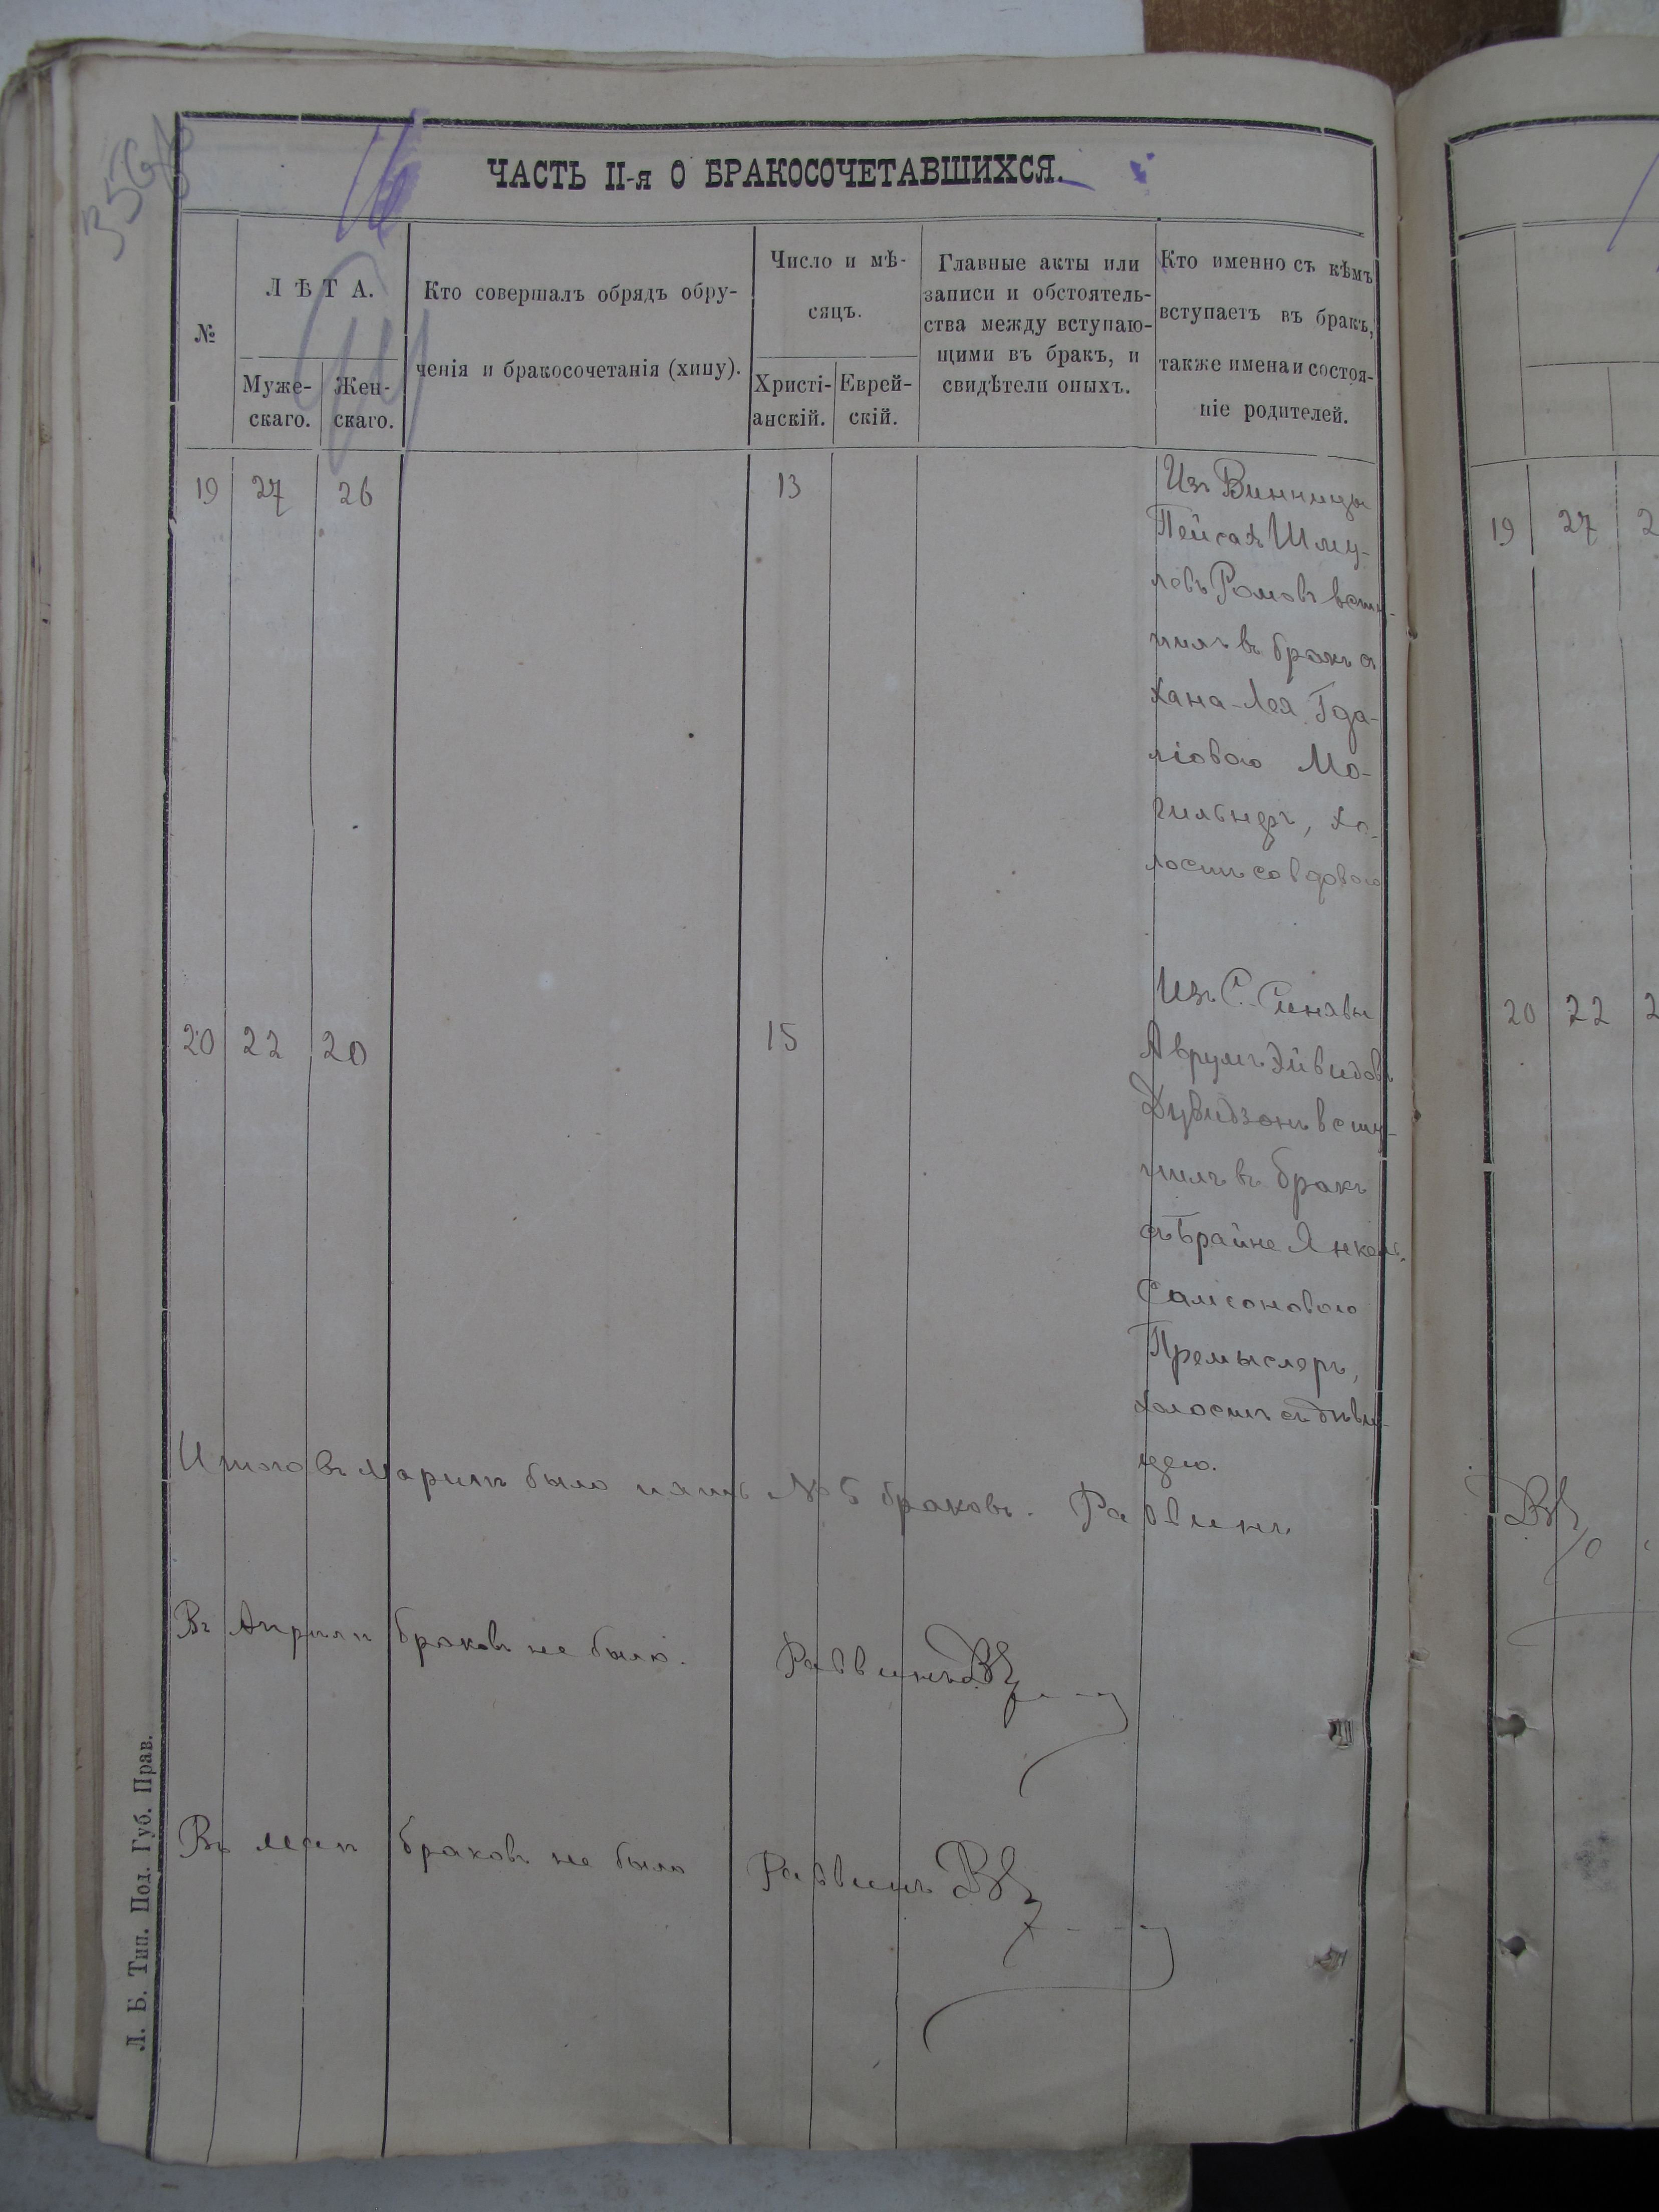 ЧАСТЬ II-я О БРАКОСОЧЕТАВШИХСЯ.
№
ЛѢТА.
Муже-
скаго.
Жен-
скаго.
Кто совершалъ обрядъ обру-
ченія и бракосочетанія (хипу).
Число и мѣ-
сяцъ.
Христі-
анскій.
Еврей-
скій.
Главные акты или
записи и обстоятель-
ства между вступаю-
щими въ бракъ, и
свидѣтели оныхъ.
Кто именно съ кѣмъ
вступаетъ въ бракъ,
также имена и состоя-
ніе родителей.
19 27 26 13
Изъ Винницы
Пейсахъ Шму-
левъ Ромовъ всту-
пилъ въ бракъ съ
Хана-Лея Гда-
ліовою Мо-
гильнеръ, хо-
лостъ со вдовою
20 22 20 15
Изъ С. Синявы
Аврумъ Дувидовъ
Дувидзонъ всту-
пилъ въ бракъ
съ Брайне Янкель
Самсоновою
Премыслеръ,
холостъ съ дѣви-
цею.
Итого въ Мартѣ было пять № 5 браковъ. Раввинъ
Въ Апрѣлѣ браковъ не было. Раввинъ
Въ маѣ браковъ не было Раввинъ
Л. Б. Тип. Под. Губ. Прав.
19 27 2
20 22 2